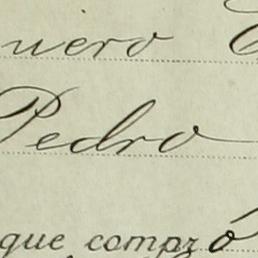 uero
Pedro
que compró